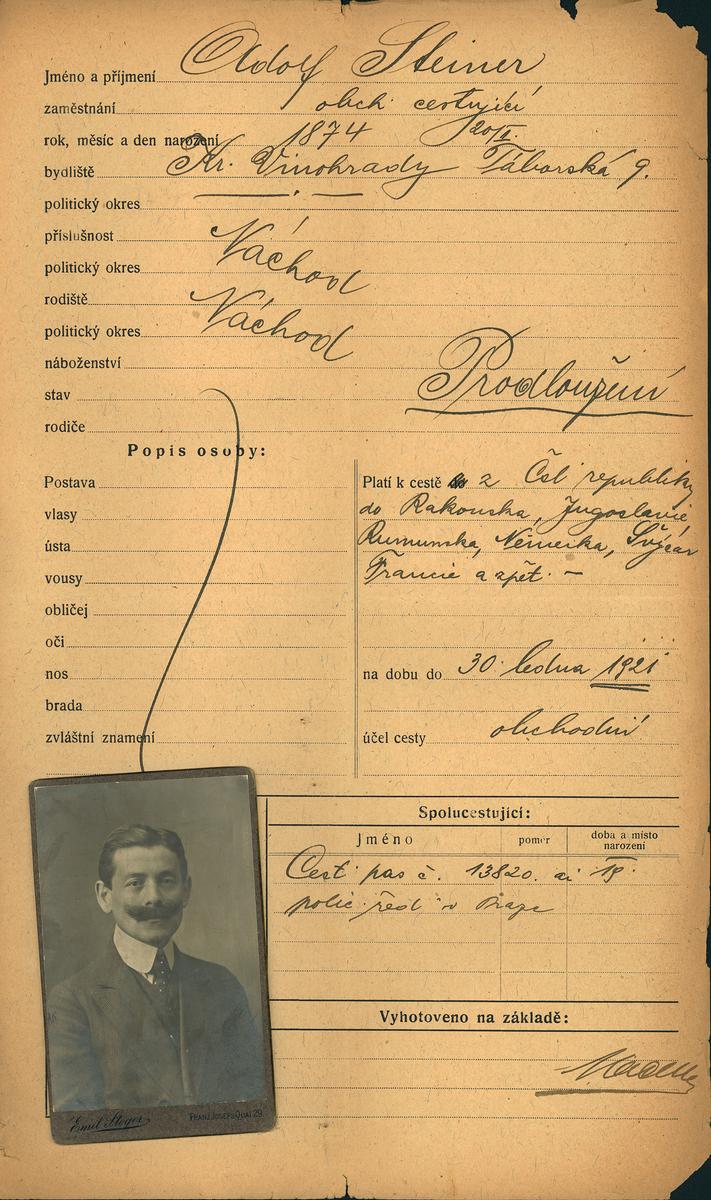 Jméno a příjmení Adolf Steiner
zaměstnání obch. cestující
rok, měsíc a den narození 1874 20/
bydliště Kr. Vinohrady Táborská 9.
politický okres
příslušnost Náchod
politický okres
rodiště Náchod
politický okres
náboženství
stav Prodloužení
rodiče
Popis osoby:
Postava
vlasy
ústa
vousy
obličej
oči
nos
brada
zvláštní znamení
Platí k cestě z Čsl republiky
do Rakouska, Jugoslavie,
Rumunska, Německa, Švýcar
Francie a zpět. —
na dobu do 30. ledna 1921
účel cesty obchodní
Spolucestující:
Jméno poměr doba a místo narození
Cest pas č. 13820. ai 19
polic. řed. v Praze
Vyhotoveno na základě:
Emil Steger Franz Josefs Quai 29.